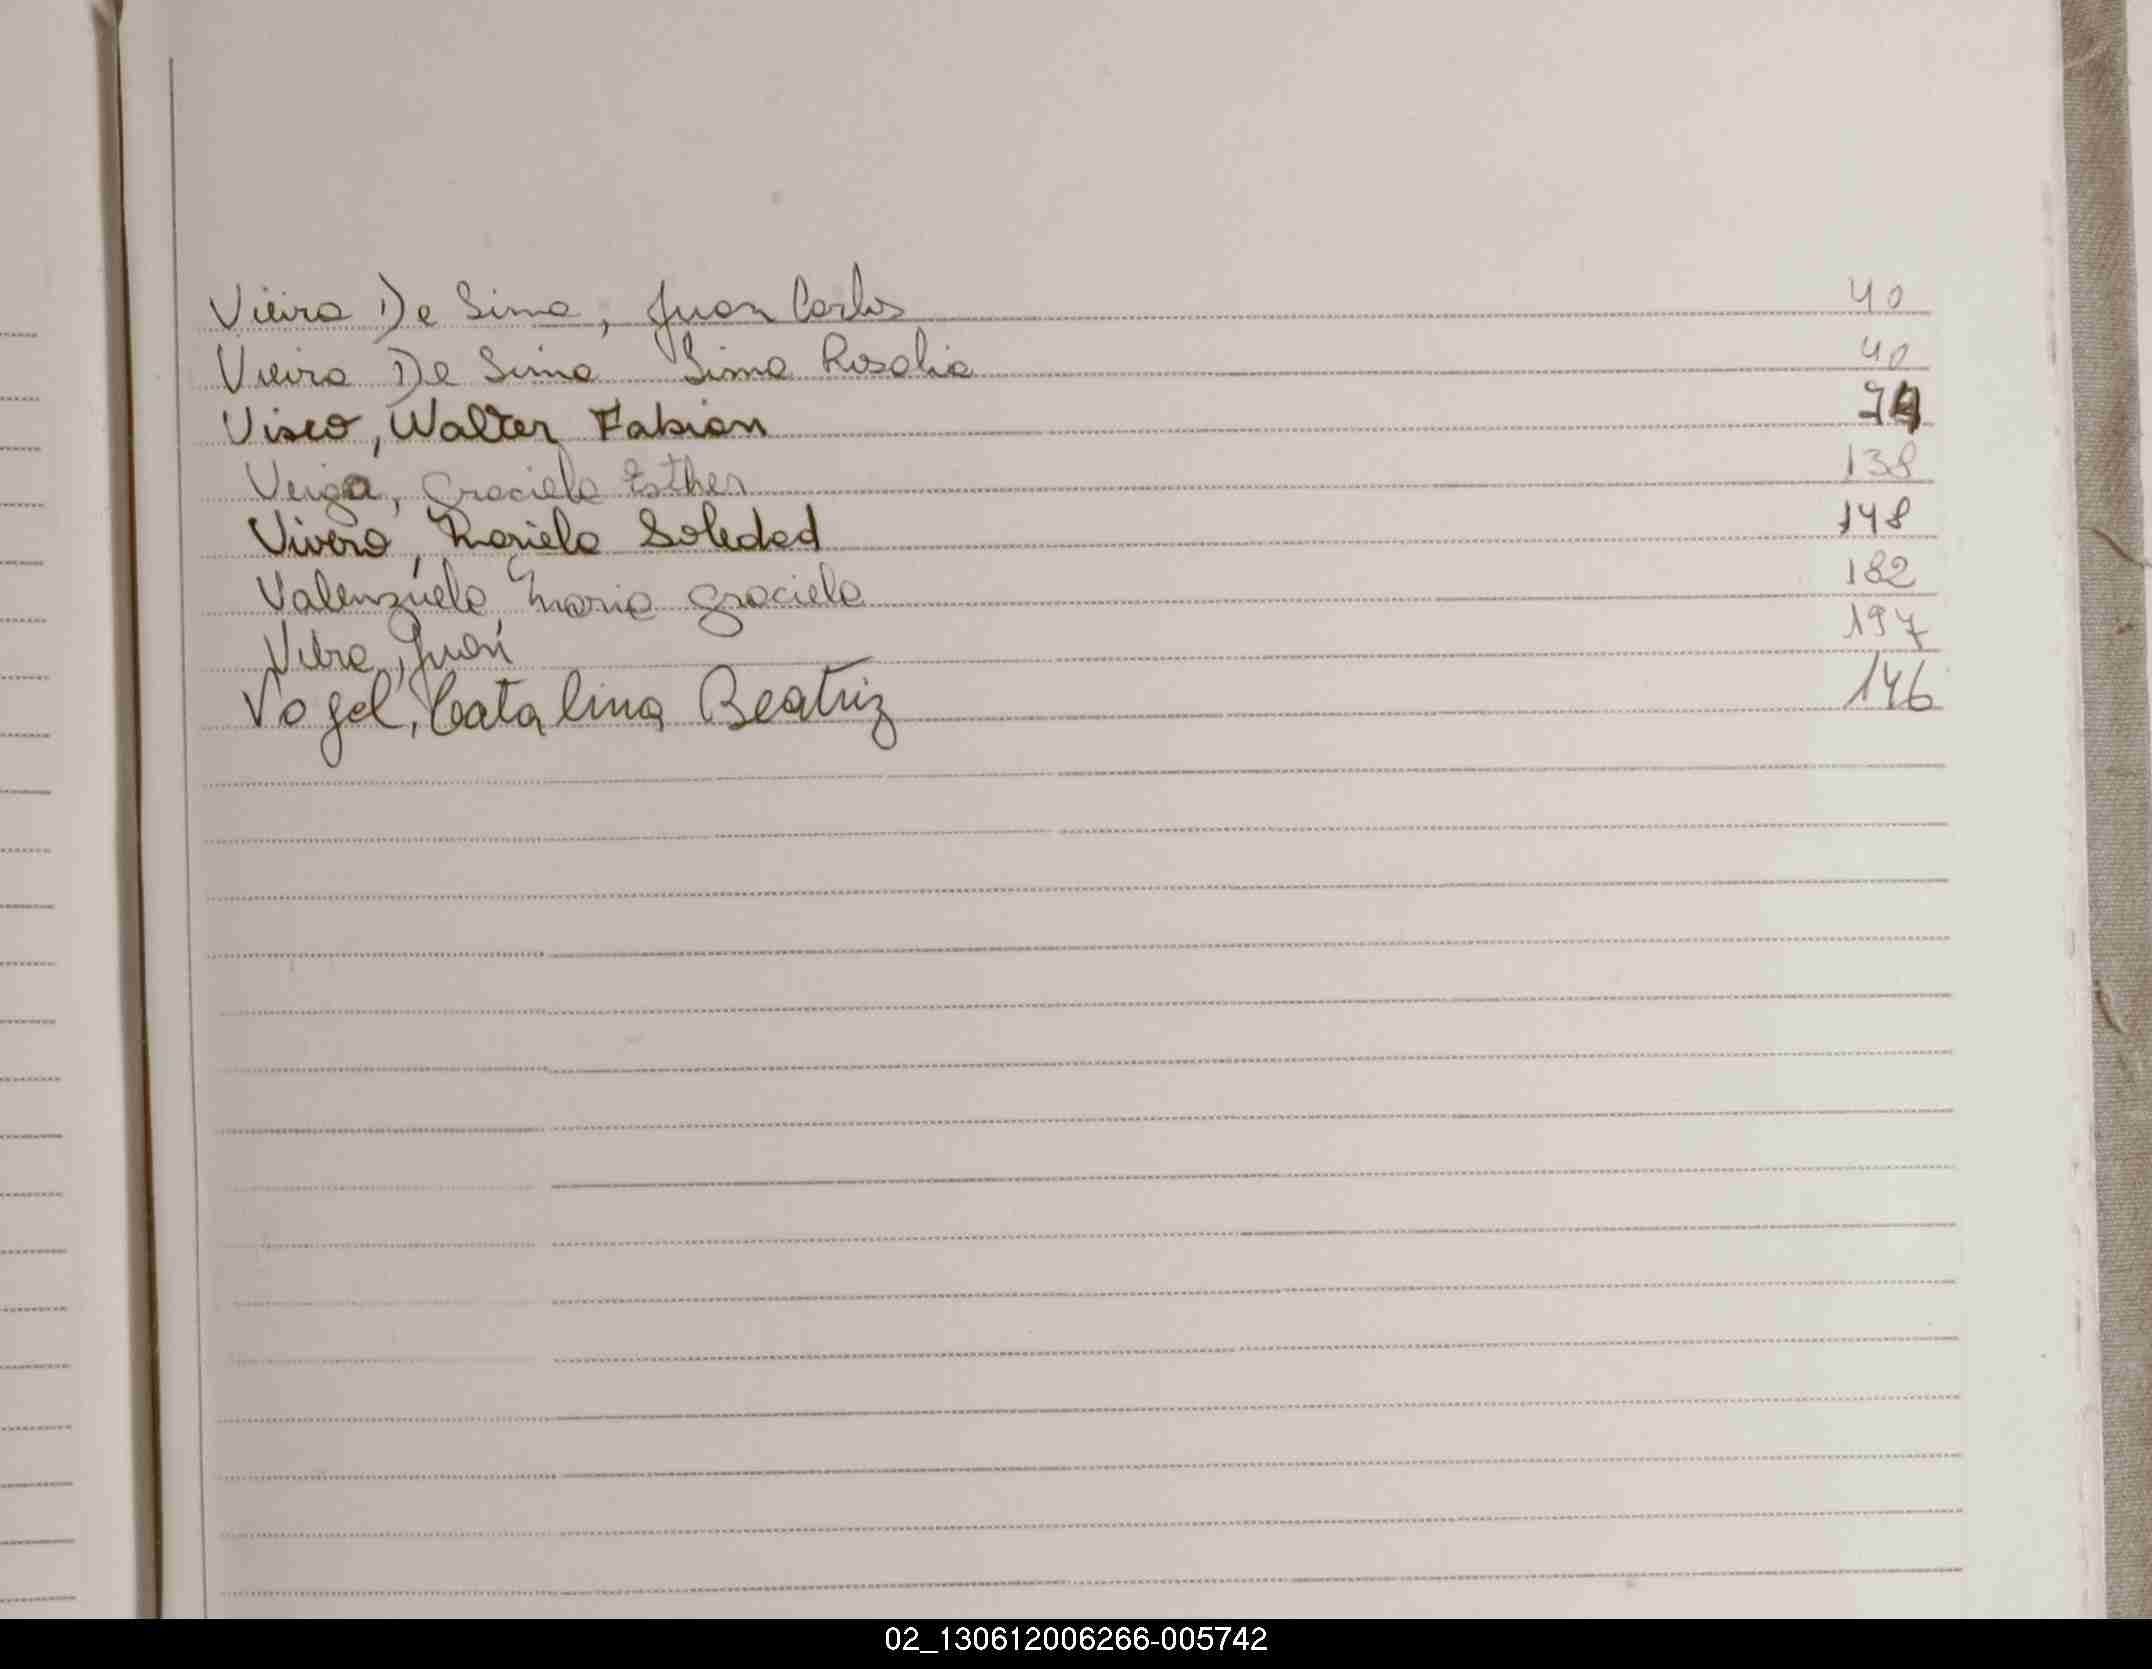 Vieira De Sima, Juan Carlos 40
Vieira De Sima Sima Rosalia 40
Visco, Walter Fabian 74
Veiga, Graciela Esther 138
Vivero, Mariela Soledad 148
Valenzuela, Maria Graciela 182
Vera, Juan 197
Vogel, Catalina Beatriz 146
02_130612006266-005742